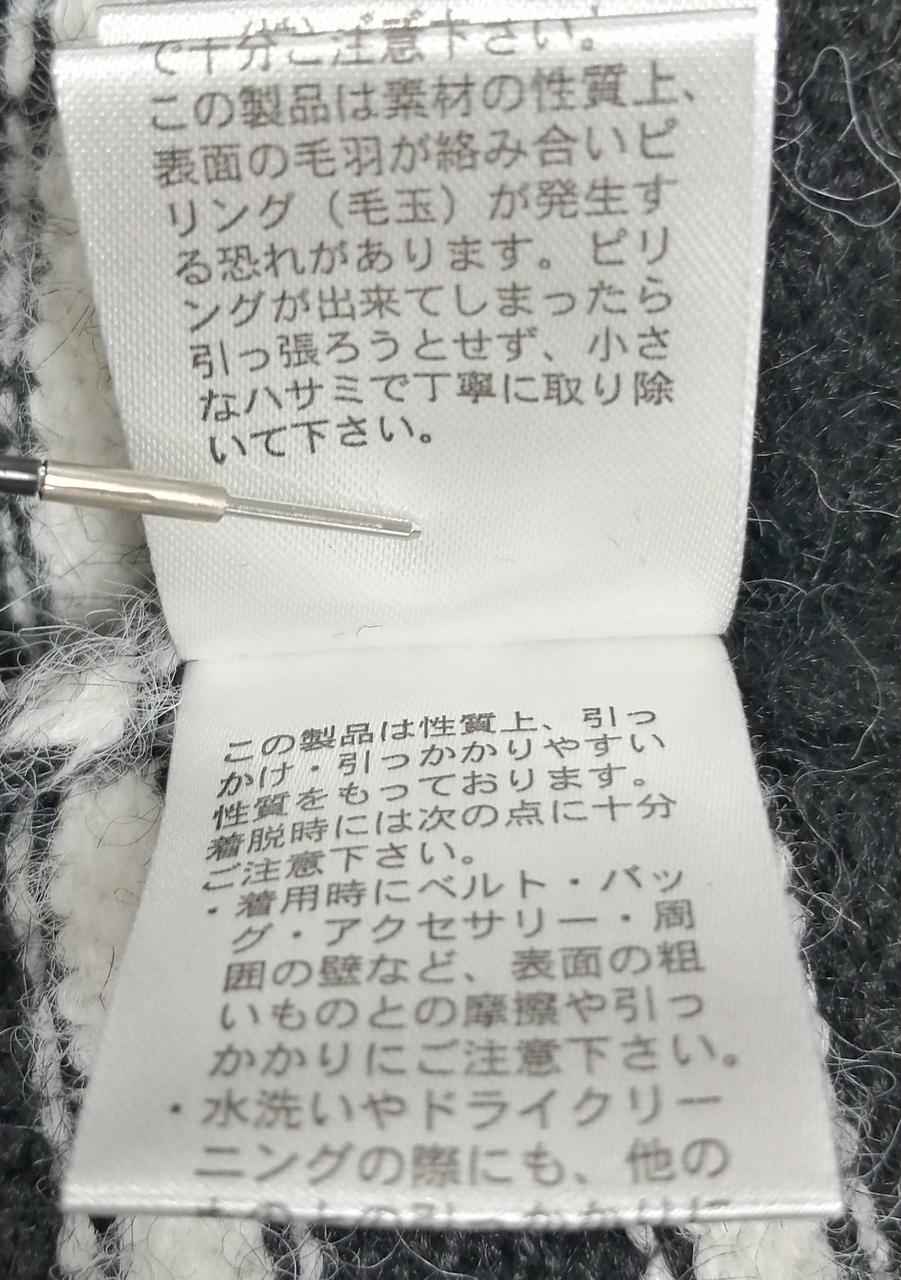 で十分ご注意下さい。
この製品は素材の性質上、
表面の毛羽が絡み合いピ
リング（毛玉）が発生す
る恐れがあります。ピリ
ングが出来てしまったら
引っ張ろうとせず、小さ
なハサミで丁寧に取り除
いて下さい。
この製品は性質上、引っ
かけ・引っかかりやすい
性質をもっております。
着脱時には次の点に十分
ご注意下さい。
・着用時にベルト・バッ
グ・アクセサリー・周
囲の壁など、表面の粗
いものとの摩擦や引っ
かかりにご注意下さい。
・水洗いやドライクリー
ニングの際にも、他の
ものとの引っかかりに